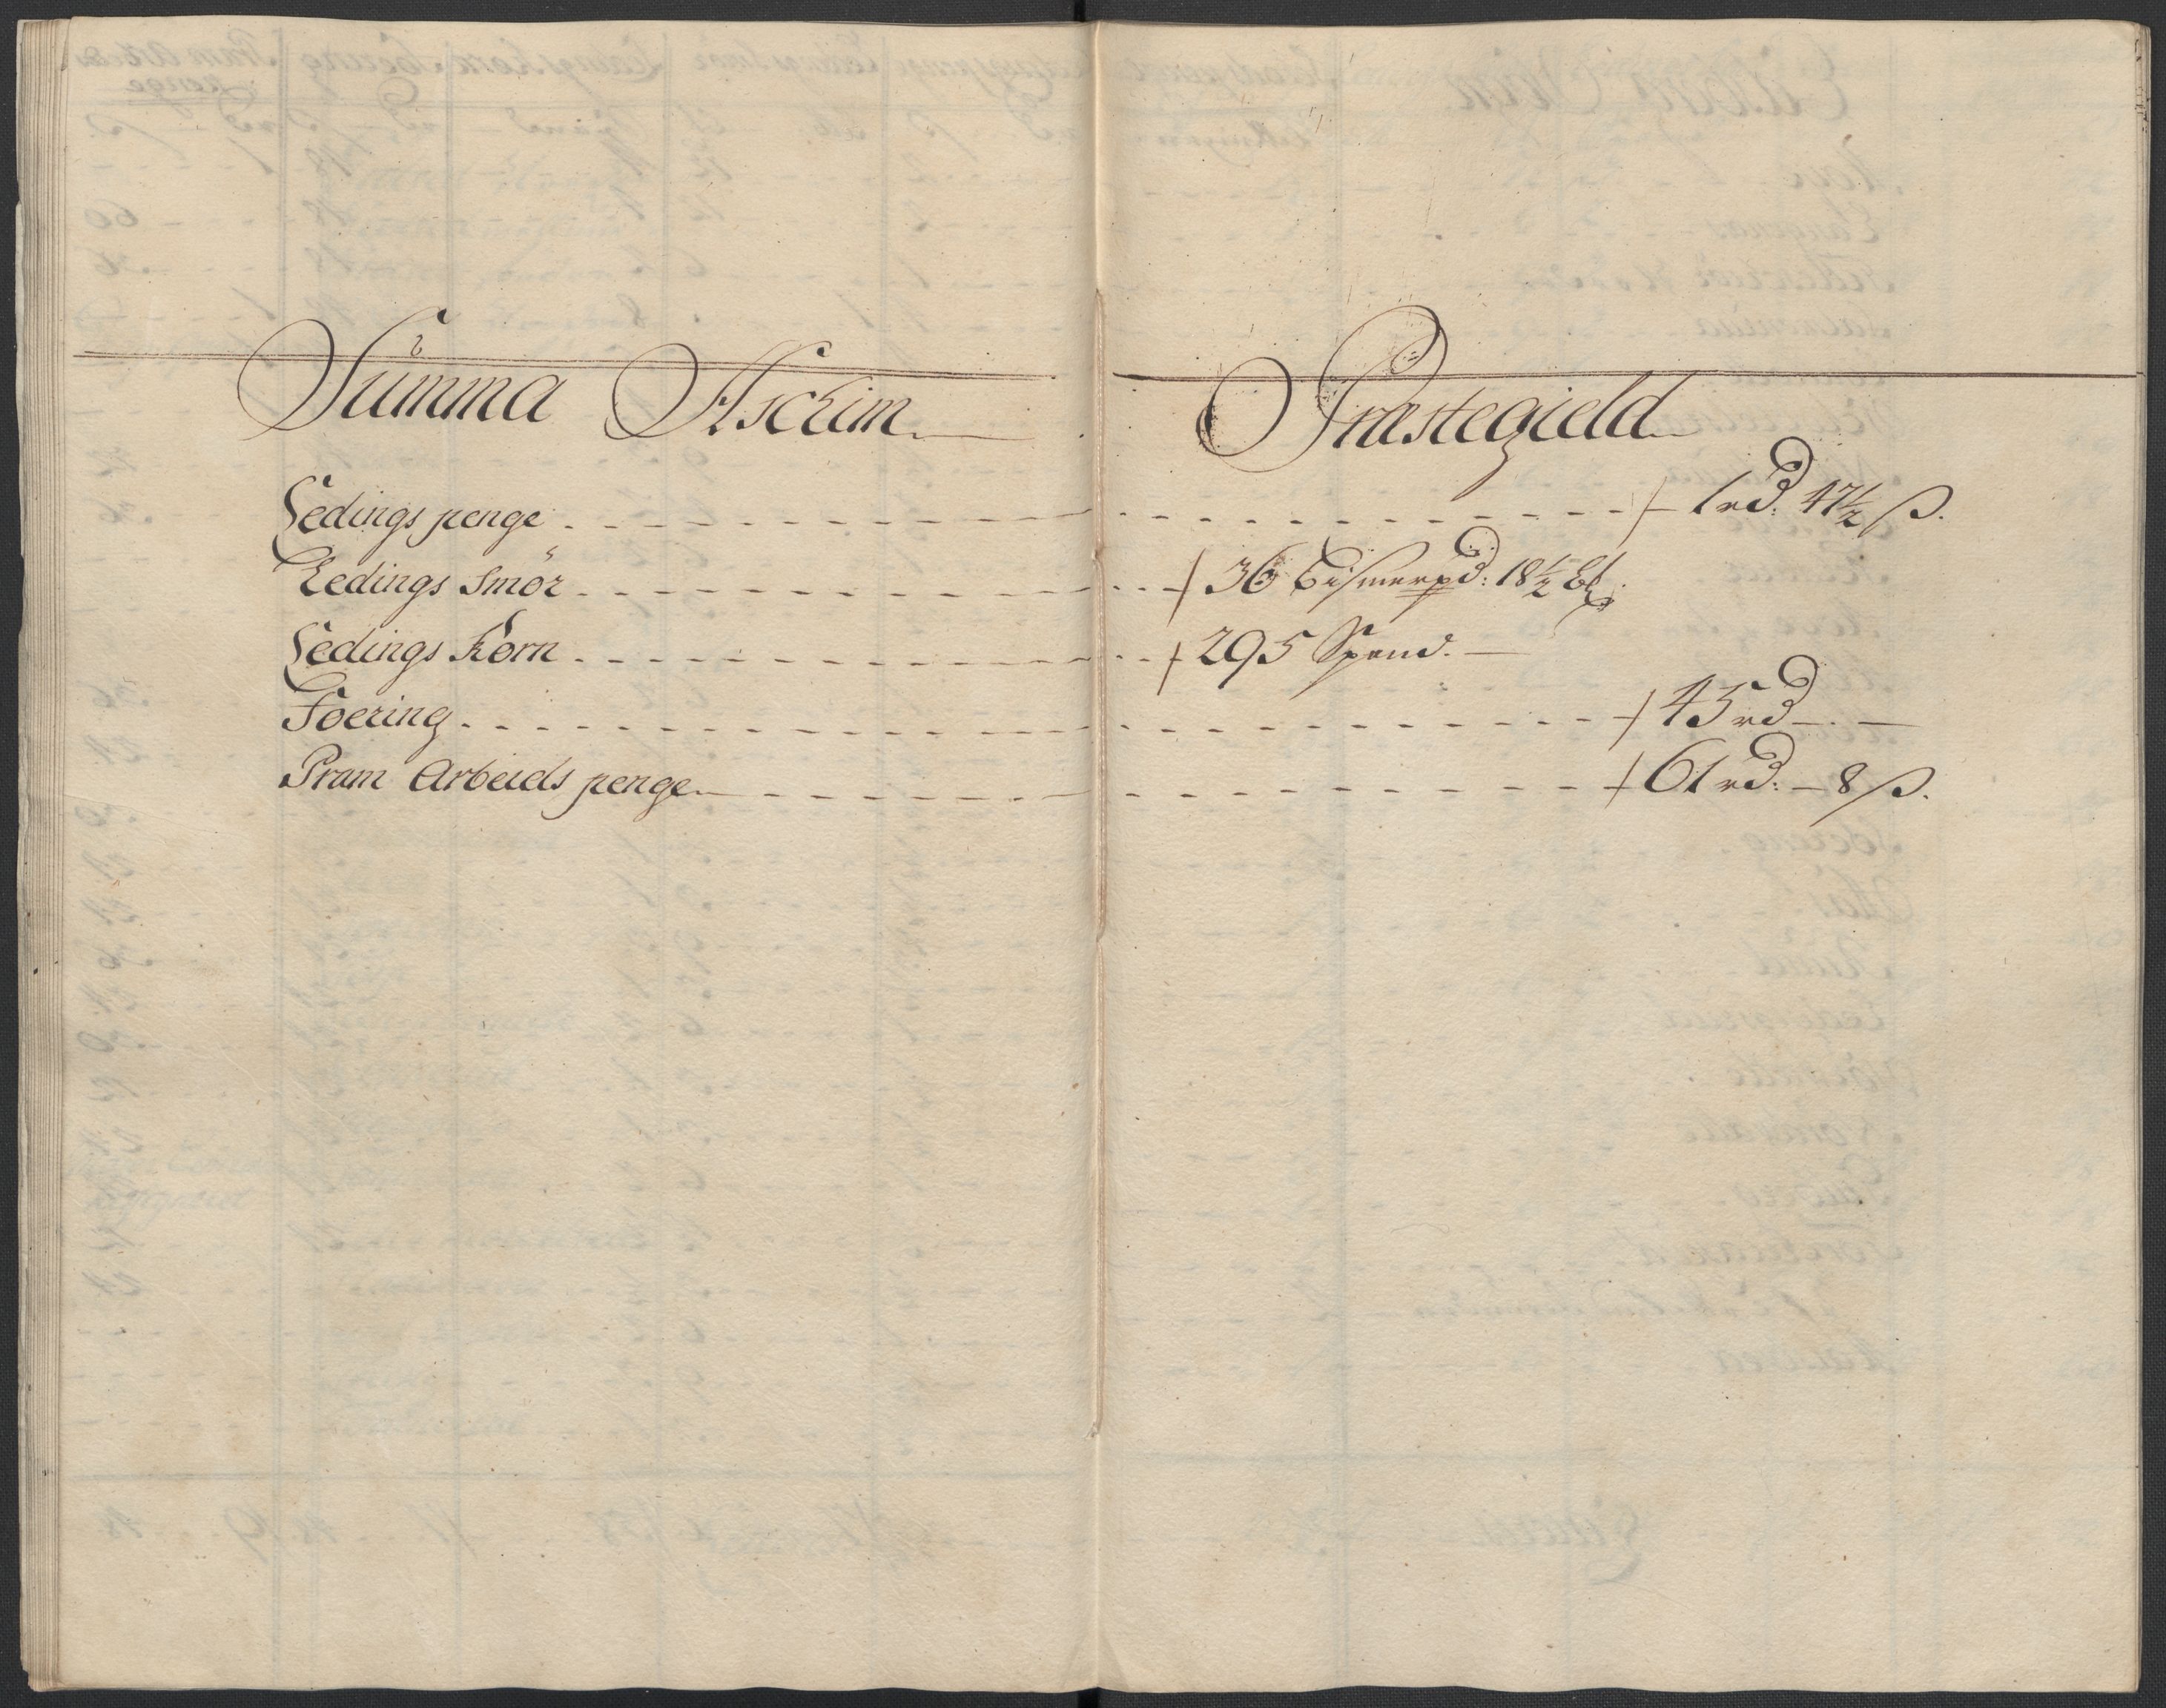 Summa Aschim Præstegield
Ledings penge - 1 rd: 47½ ß.
Ledings Smör - 36 Bismerpd: 18½ ℔
Ledings Korn - 295 Spand. -
Foering - 45 rd - . -
Pram Arbeids penge - 61 rd: - 8 ß.